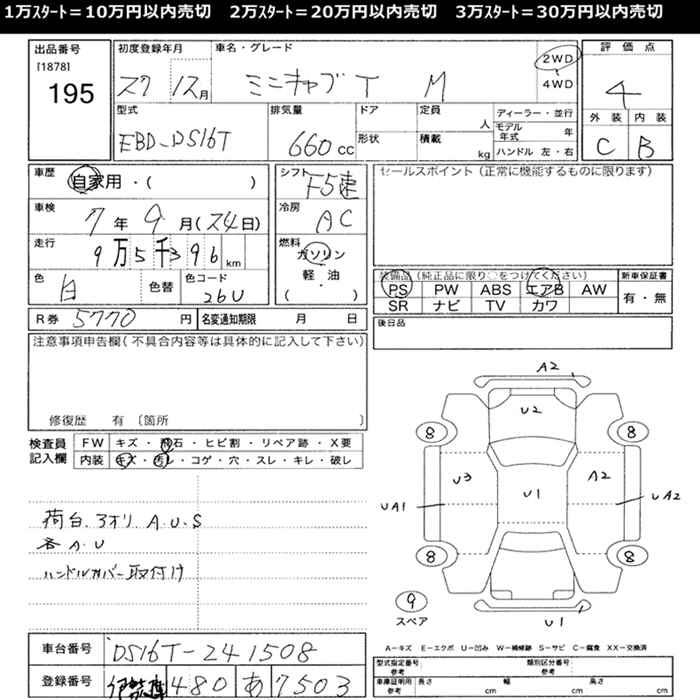 1万ｽﾀｰﾄ＝10万円以内売切　2万ｽﾀｰﾄ＝20万円以内売切　3万ｽﾀｰﾄ＝30万円以内売切
出品番号
[1878]
195
初度登録年月
27 12月
車名・グレード
ミニキャブT M
2WD
4WD
評価点
4
外装 内装
C B
型式
EBD-DS16T
排気量
660cc
ドア
形状
定員
人
積載
kg
ディーラー・並行
モデル年式 年
ハンドル 左・右
車歴
自家用・( )
シフト
F5速
車検
7年9月(24日)
冷房
AC
走行
9万5千396km
燃料
ガソリン
軽・油
( )
色
白
色替
色コード
26U
R券 5770円
名変通知期限 月 日
セールスポイント (正常に機能するものに限ります)
装備品 (純正品に限り○をつけてください)
PS PW ABS エアB AW
SR ナビ TV カワ
新車保証書
有・無
後日品
注意事項申告欄(不具合内容等は具体的に記入して下さい)
修復歴 有 〔箇所
検査員記入欄
FW キズ・飛石・ヒビ割・リペア跡・X要
内装 キズ・汚レ・コゲ・穴・スレ・キレ・破レ
荷台、3オリ A.U.S
各A.U
ハンドルカバー取付け
A2
U2
8 8
U3 A2
UA1 U1 UA2
8 8
9
スペア
U1
A－キズ E－エクボ U－凹み W－補修跡 S－サビ C－腐食 XX－交換済
車台番号 DS16T-241508
登録番号 480 あ 7503
型式指定番号 参考
類別区分番号 参考
車庫証明用 参考
長さ cm 幅 cm 高さ cm